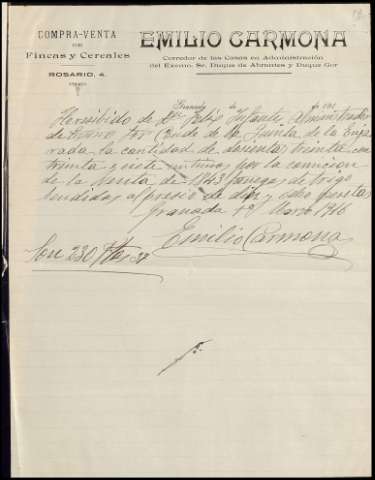 COMPRA-VENTA
DE
Fincas y Cereales
ROSARIO, 4.
EMILIO CARMONA
Corredor de las Casas en Administración
del Excmo. Sr. Duque de Abrantes y Duque Gor
Granada de de 191
He recibido de Dn Felix Infante, Administrador
de Conde de la Puebla de la
la cantidad de doscientas treinta con
treinta y siete centimos por la comision
de la Venta de fanegas de trigo
vendidas al presio de diez y ocho pesetas
Granada Marzo 1916
Emilio Carmona
Son 230 Ptas 37